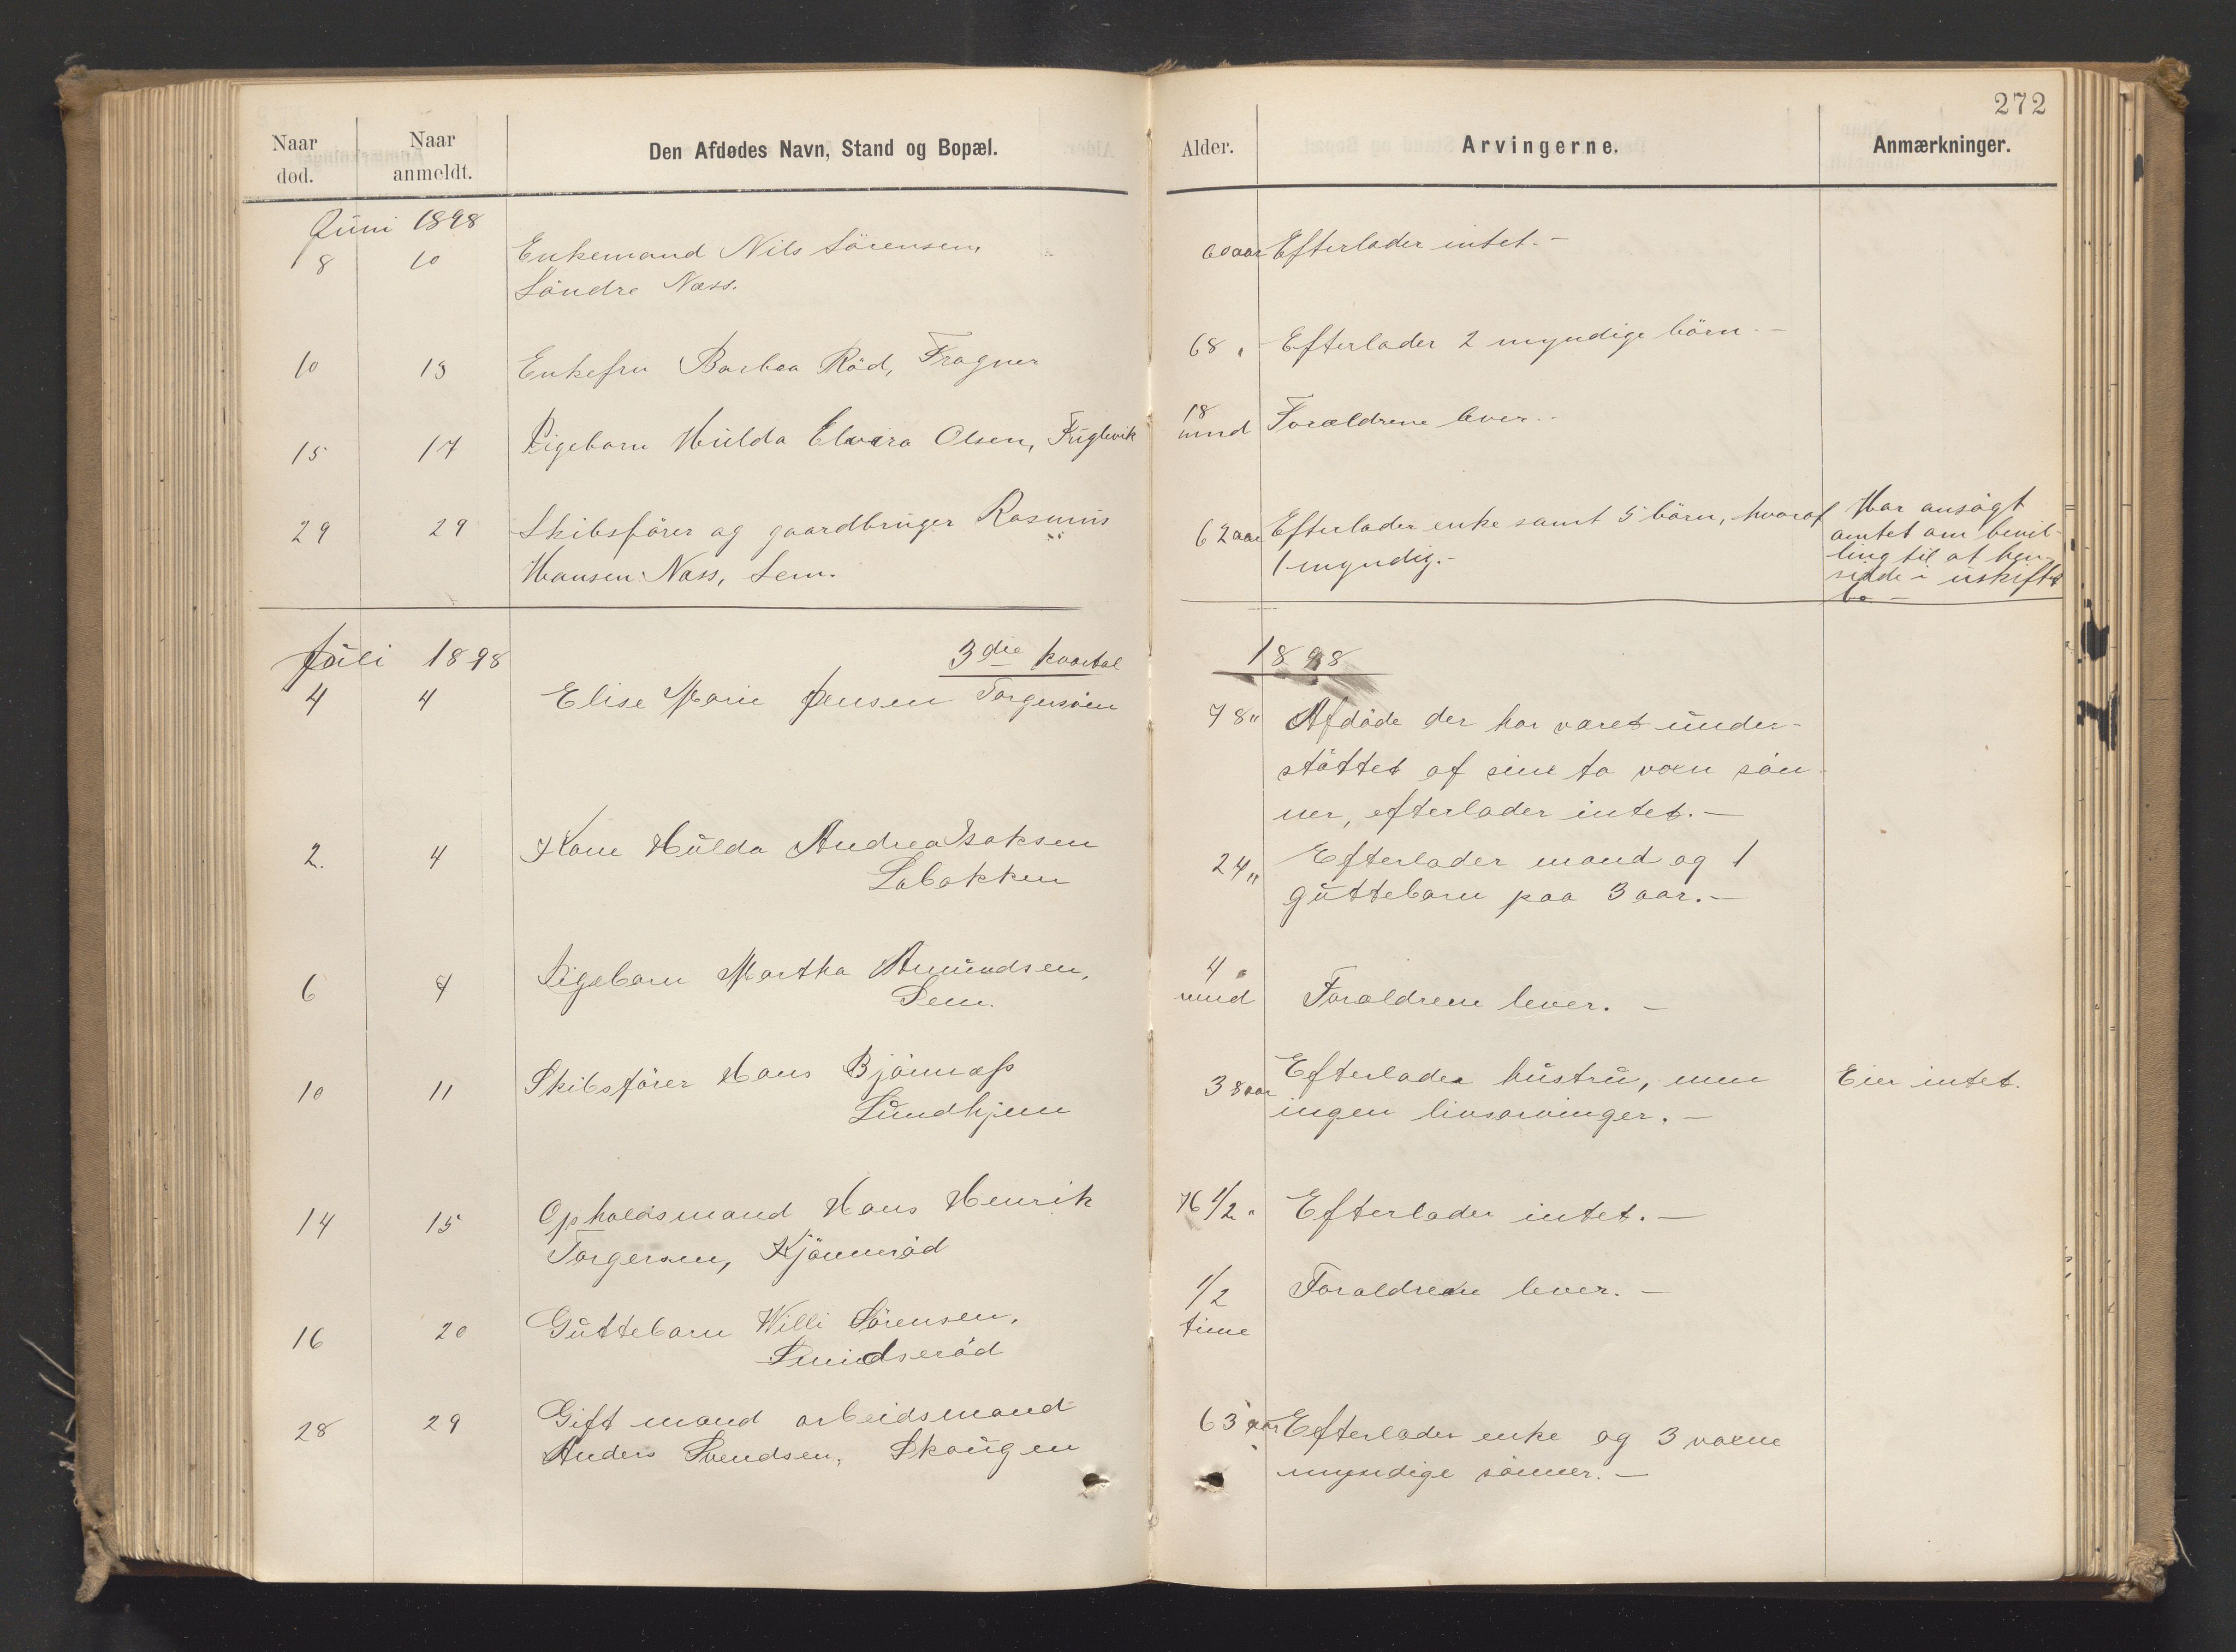 272
Naar død. Naar anmeldt. Den Afdødes Navn, Stand og Bopæl. Alder. Arvingerne. Anmærkninger.
Juni 1898
8 10 Enkemand Nils Sörensen, 60 aar Efterlader intet. –
Söndre Næss.
10 13 Enkefru Barbaa Röd, Fragner 68 " Efterlader 2 myndige börn. –
15 17 Pigebarn Hulda Elvira Olsen, Fuglevik 18 mnd Forældrene lever. –
29 29 Skibsförer og gaardbruger Rasmus 62 aar Efterlader enke samt 5 börn, hvoraf Har ansögt
Hansen Næss, Sem. 1 myndig. – amtet om bevil-
ling til at hen-
sidde i uskiftet
bo –
Juli 1898 3die kvartal 1898
4 4 Elise Marie Jensen Torgersöen 78 " Afdöde der har været under-
stöttet af sine to voxn sön-
ner, efterlader intet. –
2. 4 Kone Hulda Andrea Isaksen 24 " Efterlader mand og 1
Labakken guttebarn paa 3 aar. –
6 7 Pigebarn Martha Amundsen, 4 mnd Forældrene lever. –
Sem.
10 11 Skibsförer Hans Björnæss 38 aar Efterlader hustru, men Eier intet.
Lundhjem ingen livsarvinger. –
14 15 Opholdsmand Hans Henrik 76 1/2 " Efterlader intet. –
Torgersen, Kjönneröd
16 20 Guttebarn Willi Sörensen, 1/2 time Forældrene lever. –
Smidseröd
28 29 Gift mand arbeidsmand 63 aar Efterlader enke og 3 voxne
Anders Svendsen, Skaugen myndige sönner. –